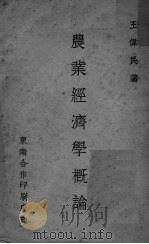 王偉民著
農業經濟學概論
東南合作印刷